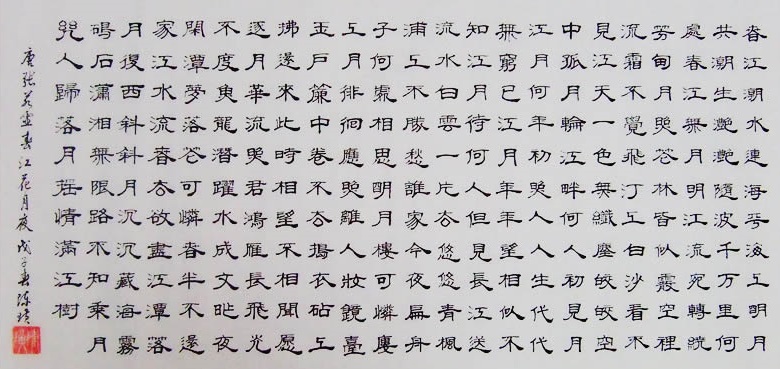 春江潮水連海平海上明月
共潮生灩灩隨波千万里何
處春江無月明江流宛轉繞
芳甸月照花林皆似霰空裡
流霜不覺飛汀上白沙看不
見江天一色無纖塵皎皎空
中孤月輪江畔何人初見月
江月何年初照人人生代代
無窮已江月年年望相似不
知江月待何人但見長江送
流水白雲一片去悠悠青楓
浦上不勝愁誰家今夜扁舟
子何處相思明月樓可憐樓
上月徘徊應照離人妝鏡臺
玉戶簾中卷不去搗衣砧上
拂還來此時相望不相聞願
逐月華流照君鴻雁長飛光
不度魚龍潛躍水成文昨夜
閑潭夢落花可憐春半不還
家江水流春去欲盡江潭落
月復西斜斜月沉沉藏海霧
碣石瀟湘無限路不知乘月
幾人歸落月搖情滿江樹
唐張若虛春江花月夜戊子春陳